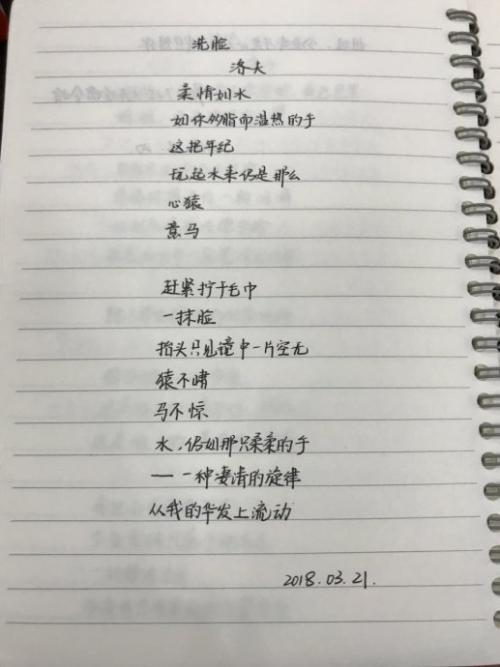 洗脸
洛夫
柔情如水
如你多脂而温热的手
这把年纪
玩起水来仍是那么
心猿
意马
赶紧拧干毛巾
一抹脸
抬头只见镜中一片空无
猿不啸
马不惊
水，仍如那只柔柔的手
—— 一种凄清的旋律
从我的华发上流动
2018.03.21.